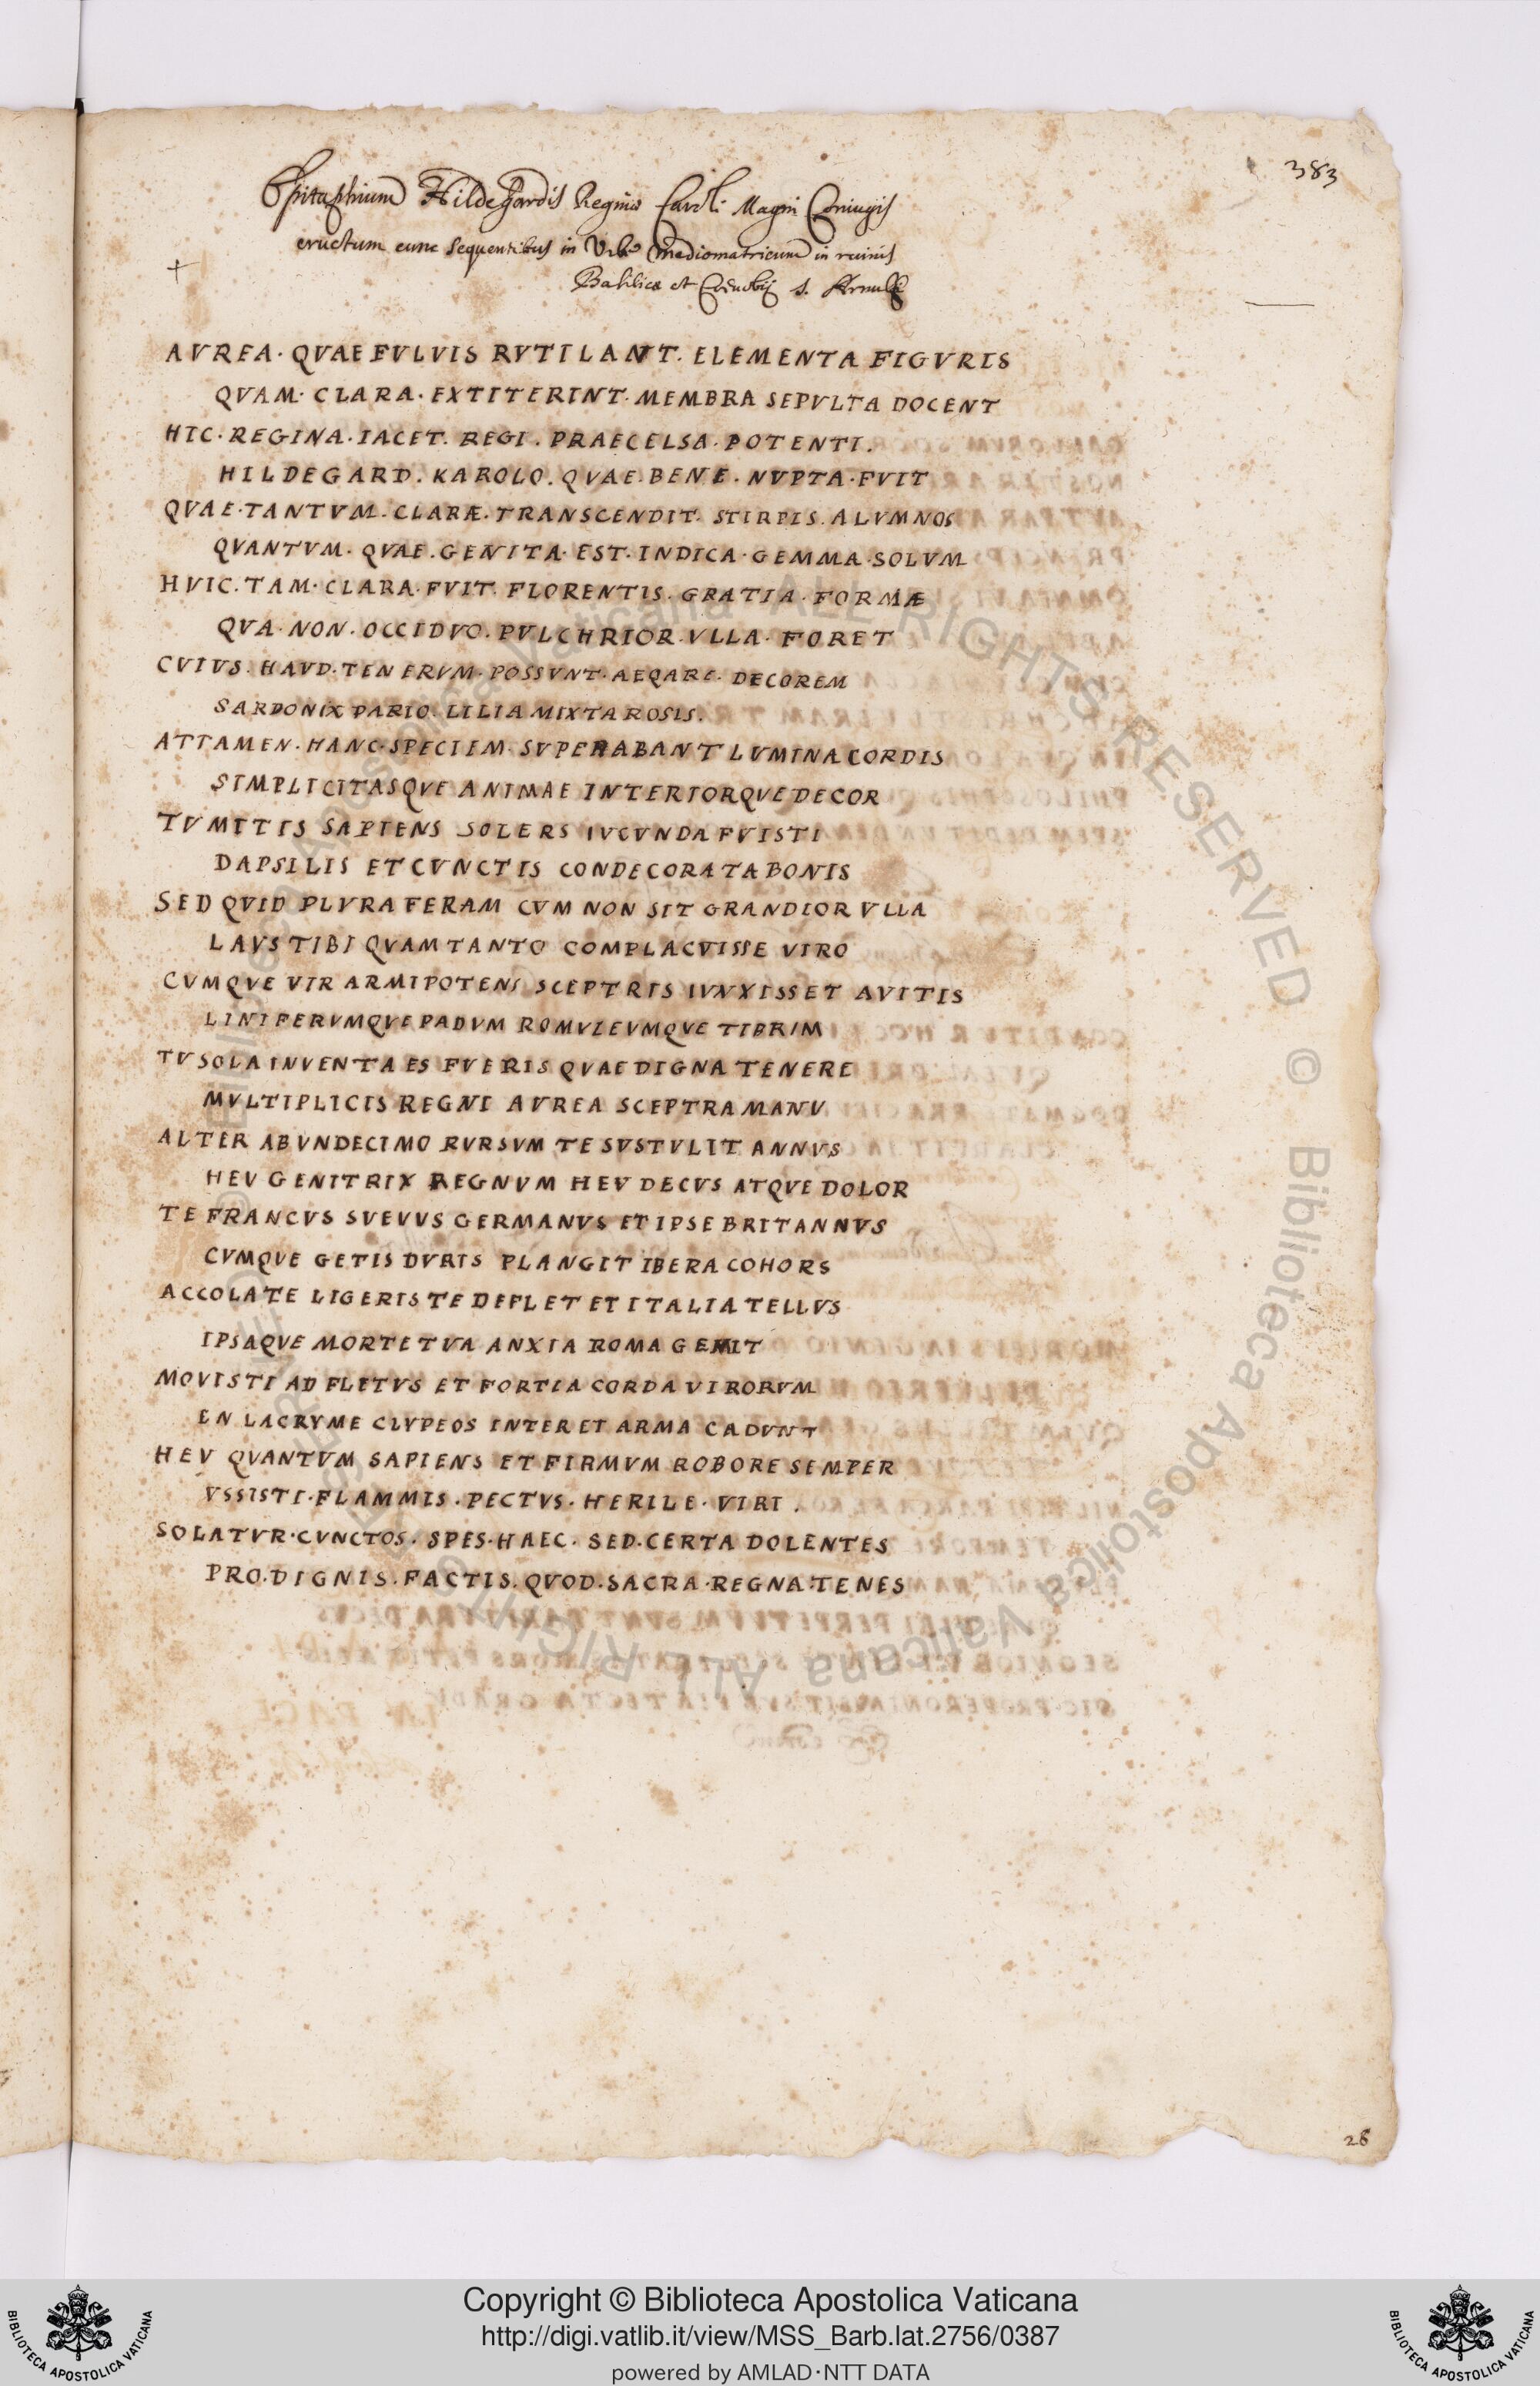 383
Epitaphium Hildegardis Reginæ Caroli Magni Coniugis
eructum cum sequentibus in Urbe Mediomatricum in ruinis
Basilicæ et Cœnobij S. Arnulfi
AVREA · QVAE FVLVIS RVTILANT · ELEMENTA FIGVRIS
QVAM · CLARA · EXTITERINT · MEMBRA SEPVLTA DOCENT
HIC · REGINA · IACET · REGI · PRAECELSA · POTENTI ·
HILDEGARD · KAROLO · QVAE · BENE · NVPTA · FVIT
QVAE · TANTVM · CLARÆ · TRANSCENDIT · STIRPIS · ALVMNOS
QVANTVM · QVAE · GENITA · EST · INDICA · GEMMA · SOLVM
HVIC · TAM · CLARA · FVIT · FLORENTIS · GRATIA · FORMÆ
QVA · NON · OCCIDVO · PVLCHRIOR · VLLA · FORET
CVIVS · HAVD · TENERVM · POSSVNT · AEQARE · DECOREM
SARDONIX PARIO · LILIA MIXTA ROSIS ·
ATTAMEN · HANC · SPECIEM · SVPERABANT LVMINA CORDIS
SIMPLICITASQVE ANIMAE INTERIORQVE DECOR
TV MITIS SAPIENS SOLERS IVCVNDA FVISTI
DAPSILIS ET CVNCTIS CONDECORATA BONIS
SED QVID PLVRA FERAM CVM NON SIT GRANDIOR VLLA
LAVS TIBI QVAM TANTO COMPLACVISSE VIRO
CVMQVE VIR ARMIPOTENS SCEPTRIS IVNXISSET AVITIS
LINIFERVMQVE PADVM ROMVLEVMQVE TIBRIM
TV SOLA INVENTA ES FVERIS QVAE DIGNA TENERE
MVLTIPLICIS REGNI AVREA SCEPTRA MANV
ALTER AB VNDECIMO RVRSVM TE SVSTVLIT ANNVS
HEV GENITRIX REGNVM HEV DECVS ATQVE DOLOR
TE FRANCVS SVEVVS GERMANVS ET IPSE BRITANNVS
CVMQVE GETIS DVRIS PLANGIT IBERA COHORS
ACCOLA TE LIGERIS TE DEFLET ET ITALIA TELLVS
IPSAQVE MORTE TVA ANXIA ROMA GEMIT
MOVISTI AD FLETVS ET FORTIA CORDA VIRORVM
EN LACRYME CLYPEOS INTER ET ARMA CADVNT
HEV QVANTVM SAPIENS ET FIRMVM ROBORE SEMPER
VSSISTI · FLAMMIS · PECTVS · HERILE · VIRI ·
SOLATVR · CVNCTOS · SPES · HAEC · SED · CERTA DOLENTES
PRO · DIGNIS · FACTIS · QVOD · SACRA · REGNA · TENES
28
© Biblioteca Apostolica Vaticana ALL RIGHTS RESERVED
Copyright © Biblioteca Apostolica Vaticana
http://digi.vatlib.it/view/MSS_Barb.lat.2756/0387
powered by AMLAD·NTT DATA
BIBLIOTECA APOSTOLICA VATICANA
BIBLIOTECA APOSTOLICA VATICANA